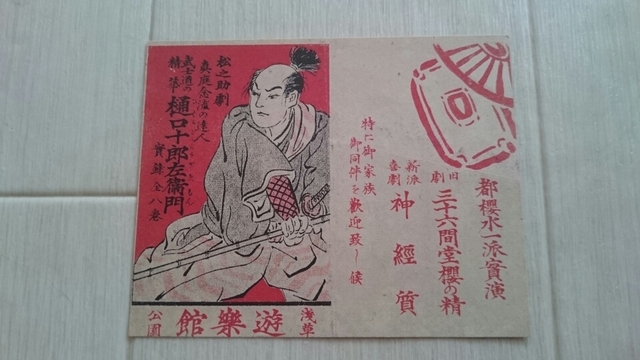 都櫻水一派實演
旧劇 三十六間堂櫻の精
新派喜劇 神經質
特に御家族
御同伴を歓迎致し候
松之助劇
真庭念流の達人
武士道の精華
樋口十郎左衛門
實録全八巻
浅草
遊樂館
公園